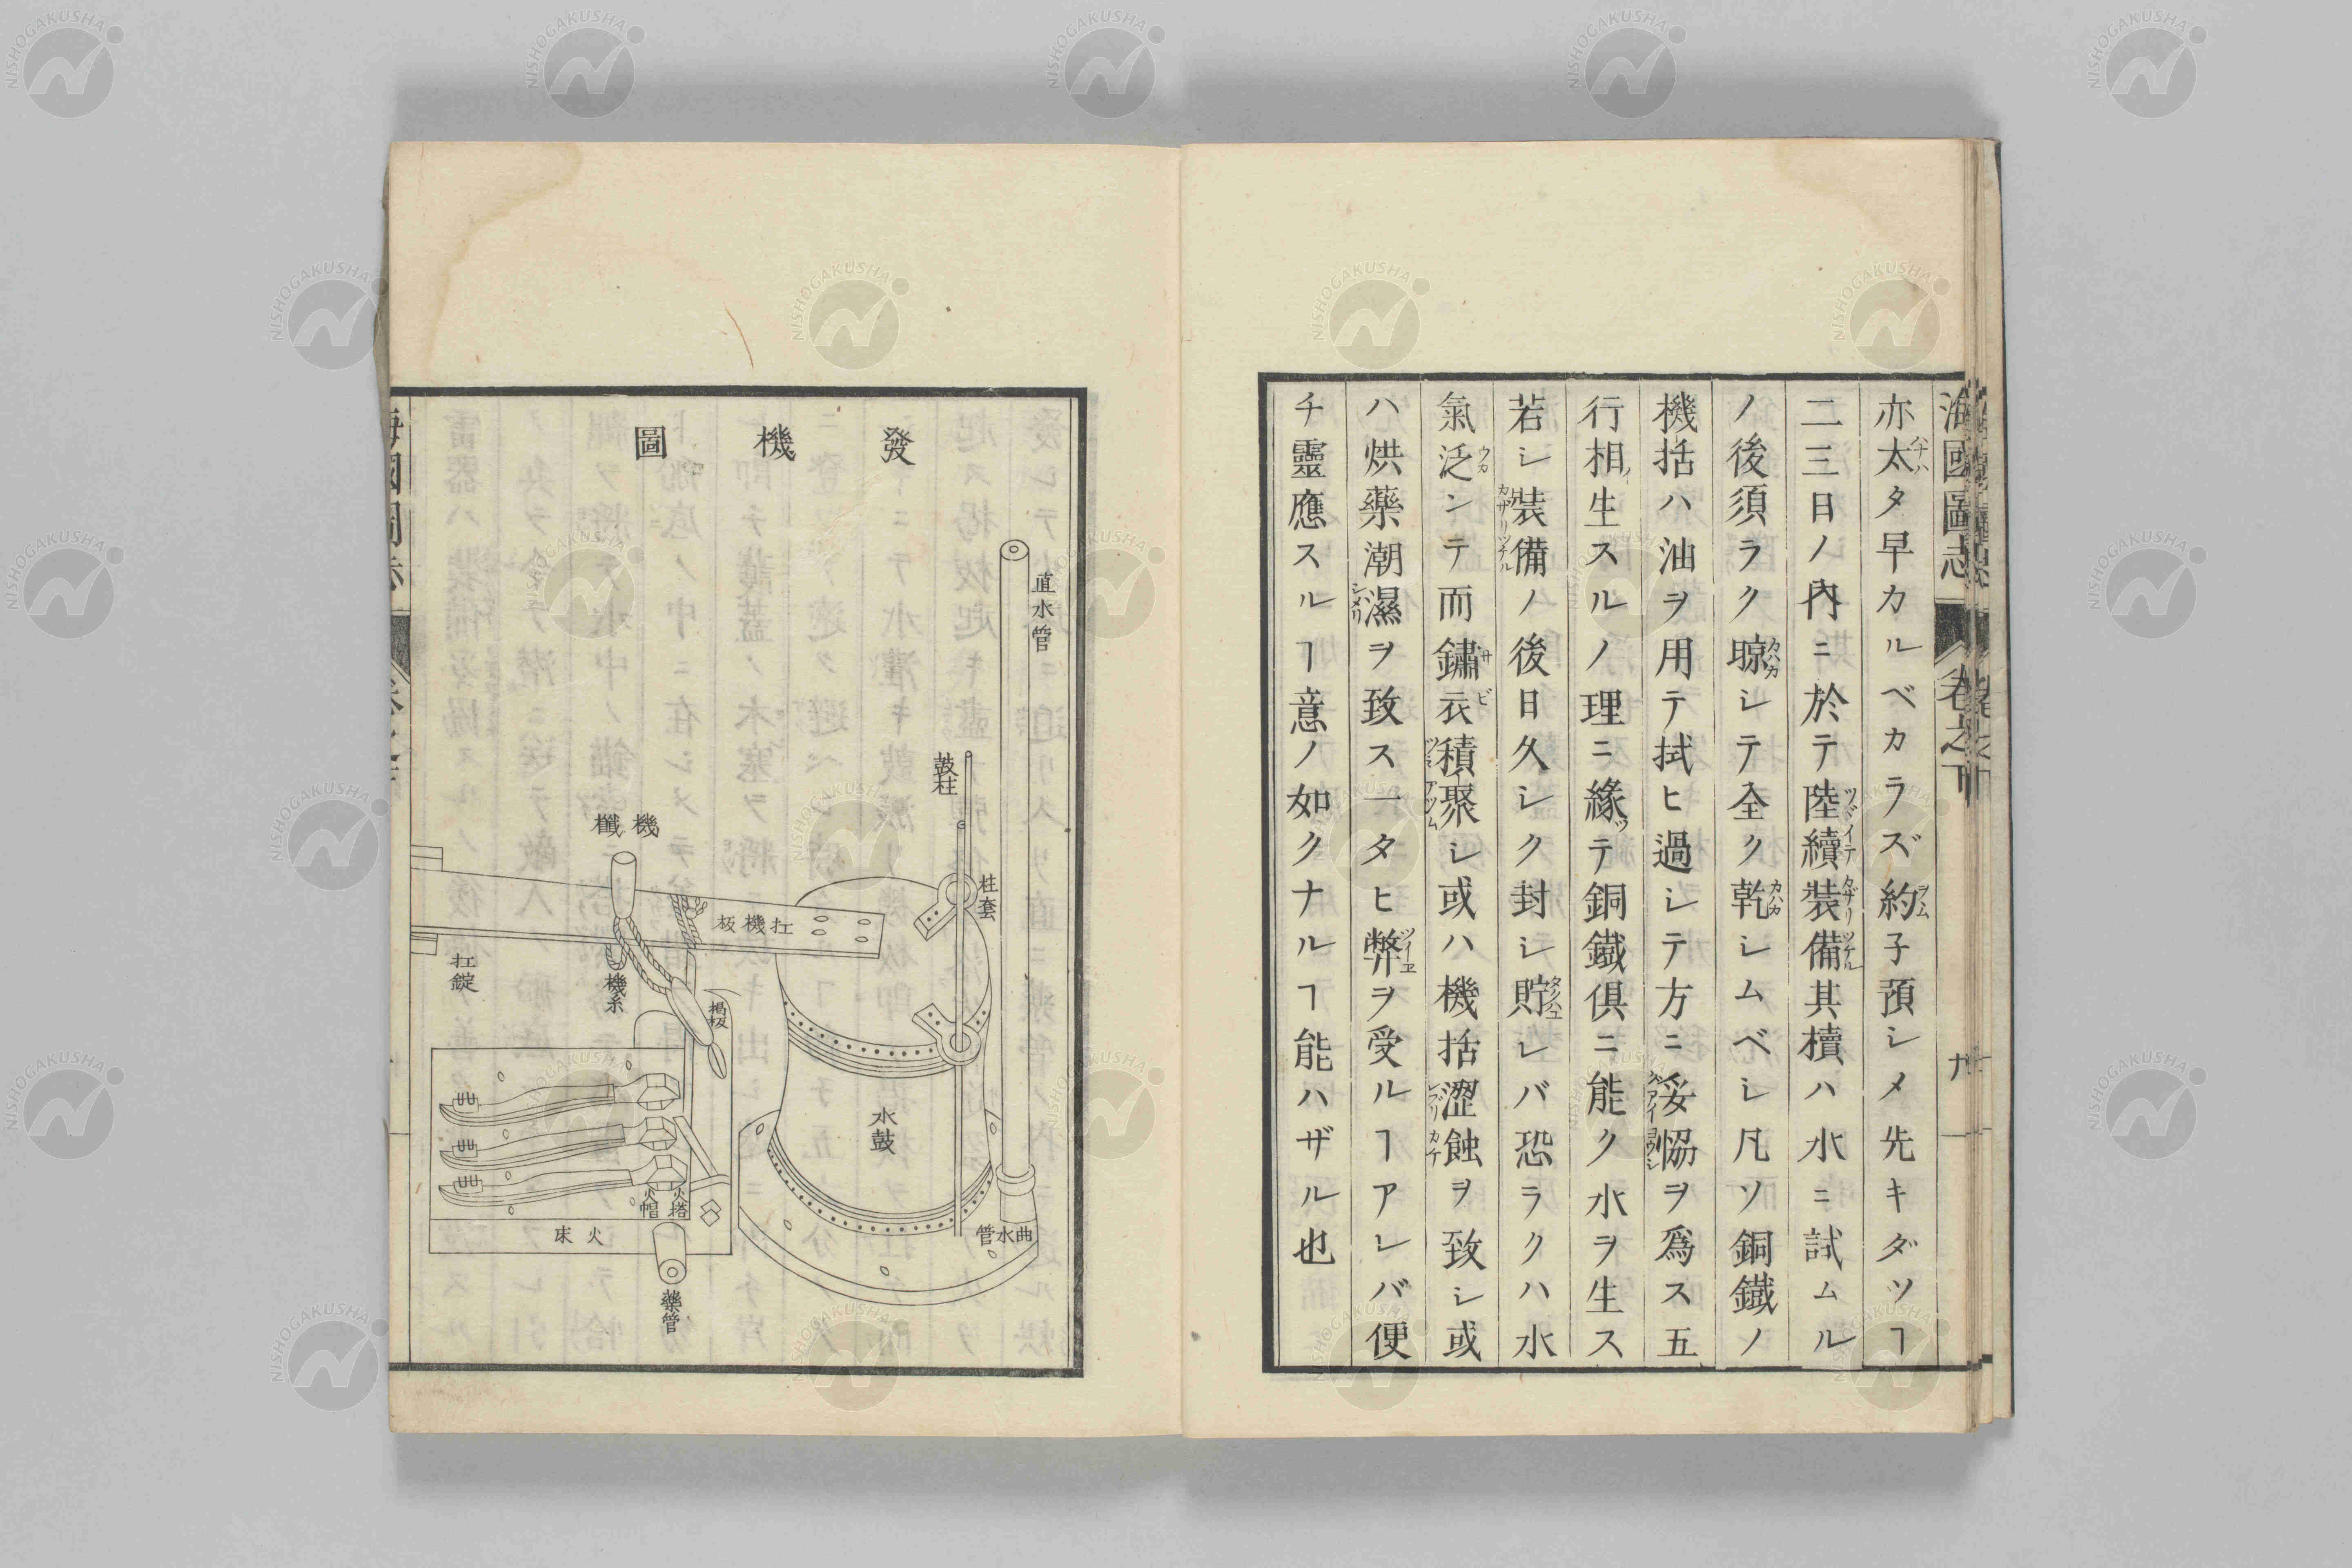 海國圖志
卷之下
九
亦太タ早カルベカラズ約子預シメ先キダツヿ
二三日ノ內ニ於テ陸續裝備其櫝ハ水ニ試ムル
ノ後須ラク晾シテ全ク乾シムベシ凡ソ銅鐵ノ
機括ハ油ヲ用テ拭ヒ過シテ方ニ妥恊ヲ爲ス五
行相生スルノ理ニ緣テ銅鐵俱ニ能ク水ヲ生ス
若シ裝備ノ後日久シク封シ貯レバ恐ラクハ水
氣泛ンテ而鏽衣積聚シ或ハ機括澀蝕ヲ致シ或
ハ烘藥潮濕ヲ致ス一タヒ弊ヲ受ルヿアレバ便
チ靈應スルヿ意ノ如クナルヿ能ハザル也
發機圖
直水管
鼓柱
柱套
機櫼
扛機板
扛錠
機糸
揭板
水鼓
火塔
火帽
火床
曲水管
藥管
海國圖志
NISHOGAKUSHA